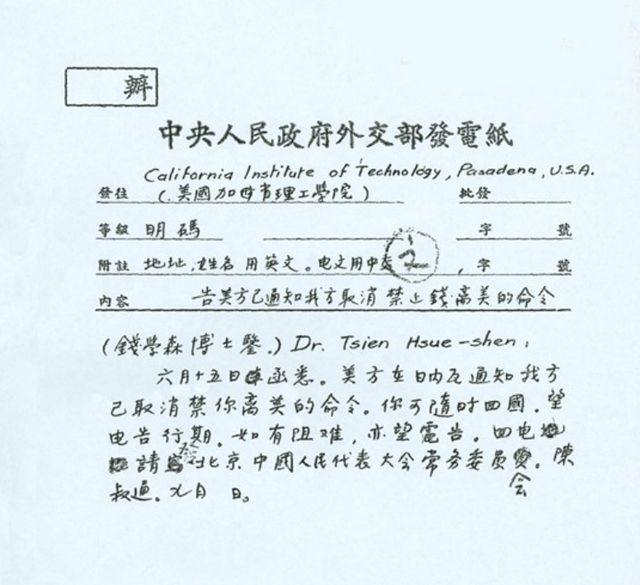 辦
中央人民政府外交部發電紙
California Institute of Technology, Pasadena, U.S.A.
發往 (美國加州省理工學院) 批發
等級 明碼 字 號
附註 地址,姓名用英文。电文用中文 字 號
內容 告美方已通知我方取消禁止錢离美的命令
(錢學森博士鑒.) Dr. Tsien Hsue-shen:
六月十五日函悉。美方在日內瓦通知我方
已取消禁你离美的命令。你可隨时回國。望
电告行期。如有阻难,亦望電告。回电
請發北京中國人民代表大会常务委員会。陳
叔通。九月 日。